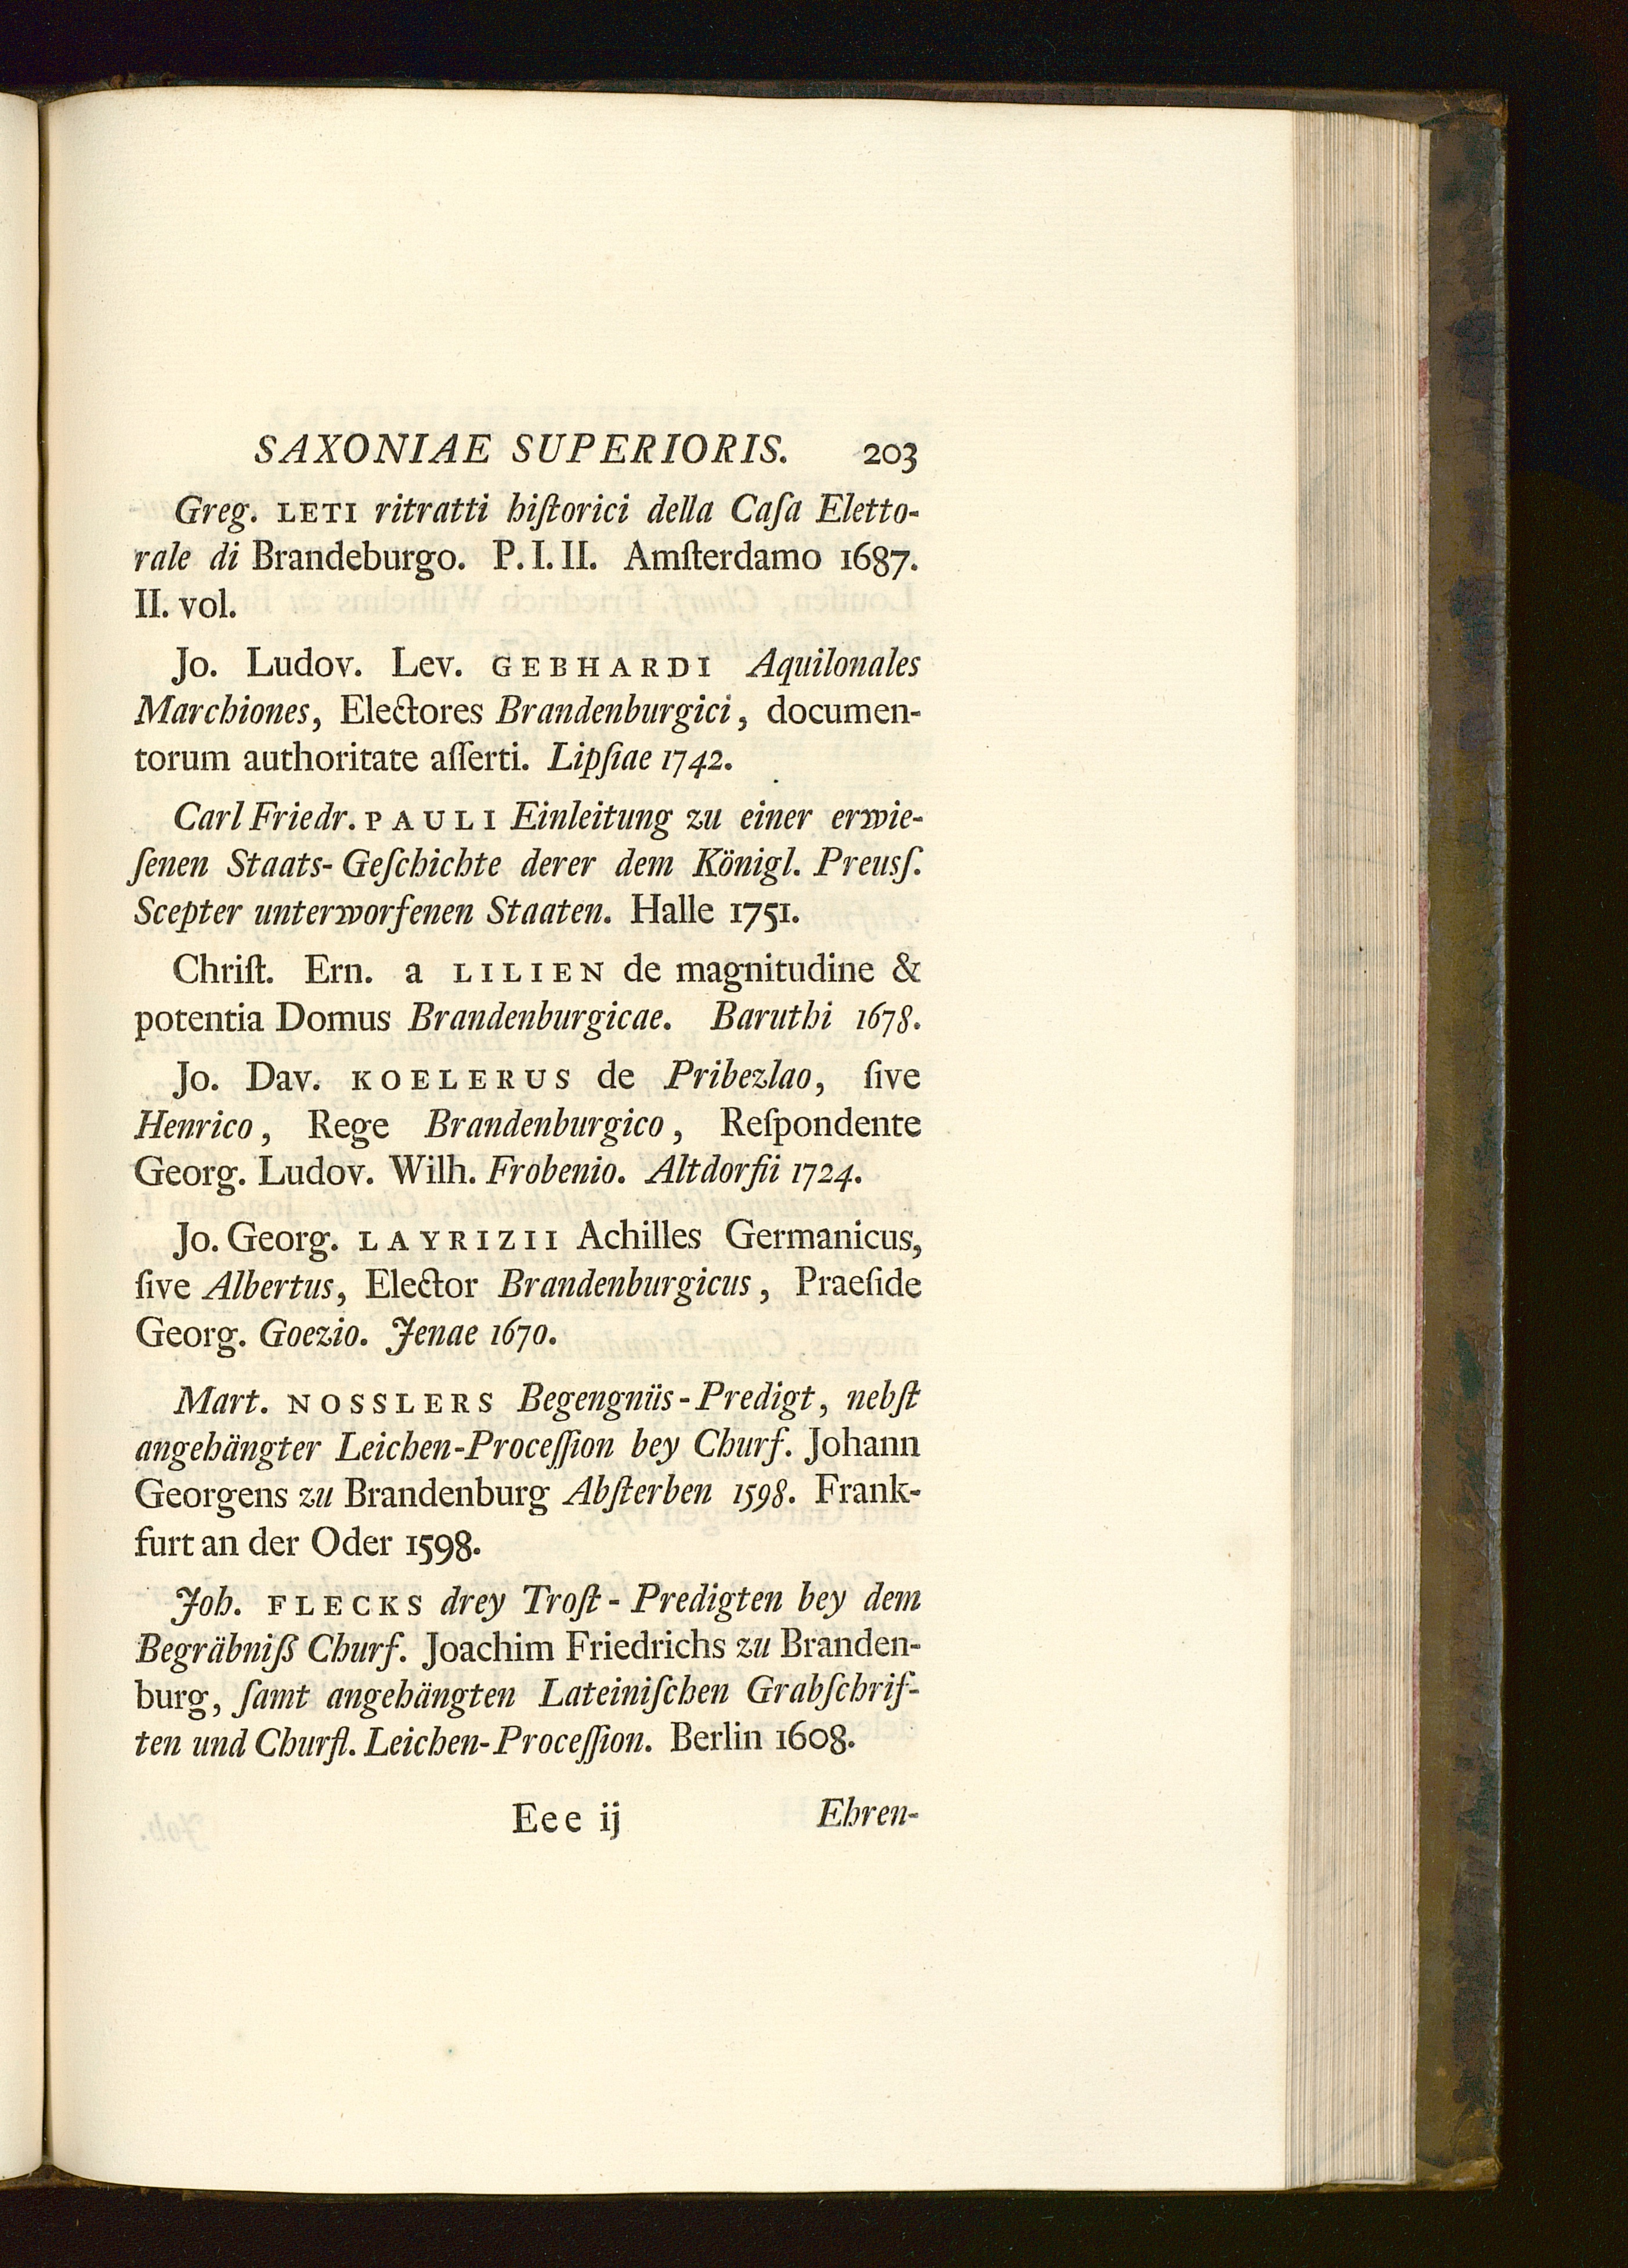 SAXONIAE SUPERIORIS. 203
Greg. LETI ritratti hiſtorici della Caſa Eletto-
rale di Brandeburgo. P. I. II. Amſterdamo 1687.
II. vol.
Jo. Ludov. Lev. GEBHARDI Aquilonales
Marchiones, Electores Brandenburgici, documen-
torum authoritate aſſerti. Lipſiae 1742.
Carl Friedr. PAULI Einleitung zu einer erwie-
ſenen Staats-Geſchichte derer dem Königl. Preusſ.
Scepter unterworfenen Staaten. Halle 1751.
Chriſt. Ern. a LILIEN de magnitudine &
potentia Domus Brandenburgicae. Baruthi 1678.
Jo. Dav. KOELERUS de Pribezlao, ſive
Henrico, Rege Brandenburgico, Reſpondente
Georg. Ludov. Wilh. Frobenio. Altdorfii 1724.
Jo. Georg. LAYRIZII Achilles Germanicus,
ſive Albertus, Elector Brandenburgicus, Praeſide
Georg. Goezio. Jenae 1670.
Mart. NOSSLERS Begengnüs-Predigt, nebſt
angehängter Leichen-Proceſſion bey Churf. Johann
Georgens zu Brandenburg Abſterben 1598. Frank-
furt an der Oder 1598.
Joh. FLECKS drey Troſt-Predigten bey dem
Begräbniß Churf. Joachim Friedrichs zu Branden-
burg, ſamt angehängten Lateiniſchen Grabſchrif-
ten und Churfl. Leichen-Proceſſion. Berlin 1608.
Eee ij Ehren-